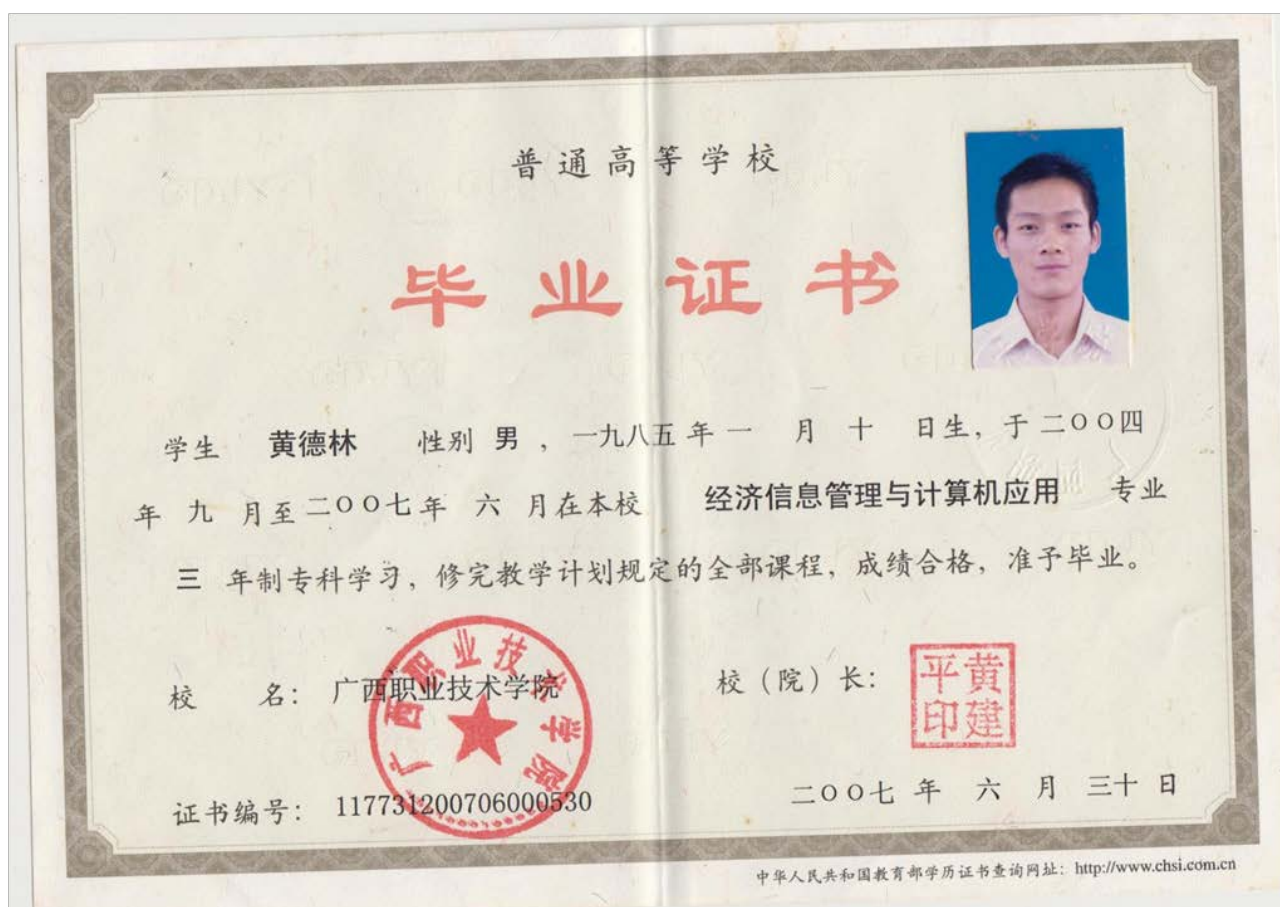 普通高等学校
毕业证书
学生 黄德林 性别 男 ，一九八五 年 一 月 十 日生，于 二〇〇四
年 九 月至 二〇〇七 年 六 月在本校 经济信息管理与计算机应用 专业
三 年制专科学习，修完教学计划规定的全部课程，成绩合格，准予毕业。
校 名： 广西职业技术学院
广西职业技术学院
校（院）长：
黄建平印
证书编号： 117731200706000530
二〇〇七 年 六 月 三十 日
中华人民共和国教育部学历证书查询网址：http://www.chsi.com.cn